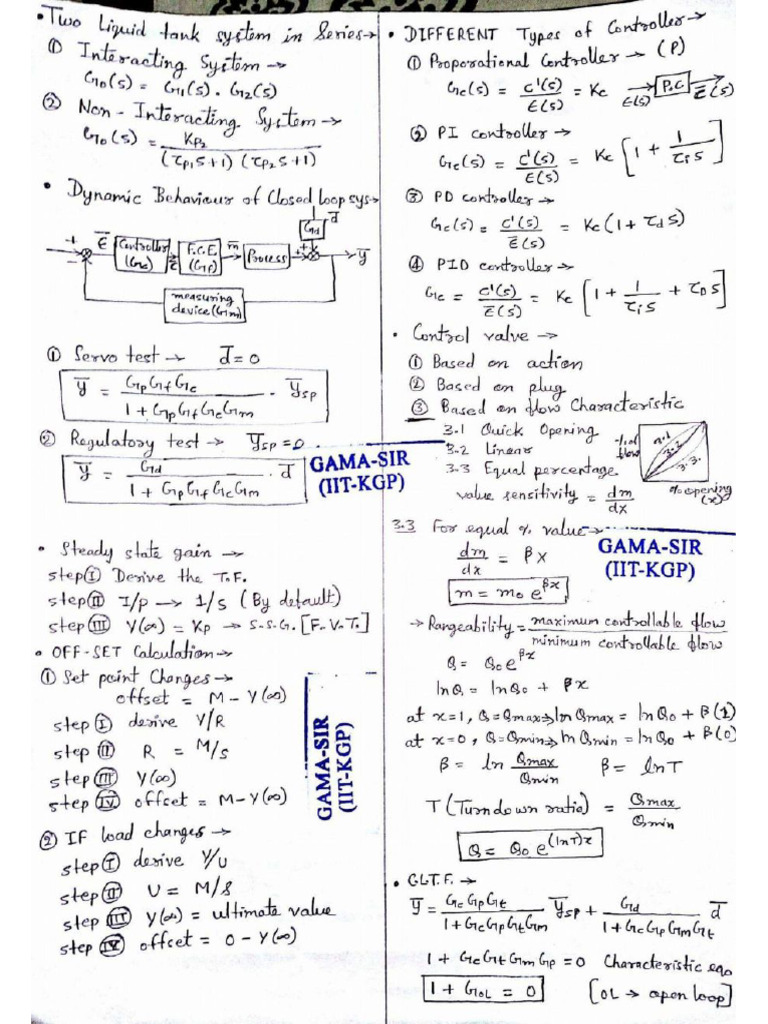 • Two Liquid tank system in Series →
① Interacting System →
G₀(s) = G₁(s) . G₂(s)
② Non-Interacting System →
G₀(s) = Kp₂ / (τp₁s+1) (τp₂s+1)
• Dynamic Behaviour of Closed loop sys →
d̄
Gd
+ − Ē Controller (Gc) c̄ F.C.E. (Gf) m̄ Process + + → ȳ
measuring device (Gm)
① Servo test → d̄ = 0
ȳ = GpGfGc / 1 + GpGfGcGm . ȳsp
② Regulatory test → ȳsp = 0
ȳ = Gd / 1 + GpGfGcGm . d̄
GAMA-SIR
(IIT-KGP)
• Steady state gain →
step Ⓘ Derive the T.F.
step Ⅱ I/p → 1/s (By default)
step Ⅲ Y(∞) = Kp → S.S.G. [F.V.T.]
• OFF-SET Calculation →
① Set point Changes →
offset = M − Y(∞)
step Ⅰ derive Y/R
step Ⅱ R = M/s
step Ⅲ Y(∞)
step Ⅳ offset = M − Y(∞)
GAMA-SIR
(IIT-KGP)
② IF load changes →
step Ⅰ derive Y/U
step Ⅱ U = M/s
step Ⅲ Y(∞) = ultimate value
step Ⅳ offset = 0 − Y(∞)
• DIFFERENT Types of Controller →
① Proporational Controller → (P)
Gc(s) = c'(s) / Ē(s) = Kc E(s) → P.C → Ē(s)
② PI controller →
Gc(s) = c'(s) / Ē(s) = Kc [1 + 1/τis]
③ PD controller →
Gc(s) = c'(s) / Ē(s) = Kc (1 + τd s)
④ PID controller →
Gc = c'(s) / Ē(s) = Kc [1 + 1/τis + τD s]
• Control valve →
① Based on action
② Based on plug
③ Based on flow Characteristic
3.1 Quick Opening
3.2 Linear
3.3 Equal percentage
% of flow
3.1
3.2
3.3
% opening (x)
value sensitivity = dm/dx
3.3 For equal % value →
dm/dx = βx
m = m₀ e^βx
GAMA-SIR
(IIT-KGP)
→ Rangeability = maximum controllable flow / minimum controllable flow
Q = Q₀e^βx
lnQ = lnQ₀ + βx
at x=1, Q=Qmax ⇒ ln Qmax = lnQ₀ + β(1)
at x=0, Q=Qmin ⇒ ln Qmin = lnQ₀ + β(0)
β = ln Qmax/Qmin β = lnT
T (Turndown ratio) = Qmax/Qmin
Q = Q₀ e^(lnT)x
• CLTF. →
ȳ = GcGpGt / 1+GcGpGtGm ȳsp + Gd / 1+GcGpGmGt d̄
1 + GcGtGmGp = 0 Characteristic eqn
1 + GOL = 0 [OL → open loop]